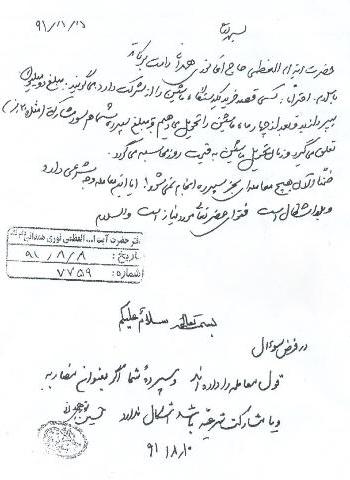 بسمه تعالی ۹۱/۸/۸
حضرت آیت الله العظمی حاج آقا نوری همدانی دامت برکاته
با سلام، احتراما کسی قصد خرید یک دستگاه ماشین را از شرکت دارد می‌گویند: مبلغ
بپردازید و بعد از چهار ماه ماشین را تحویل می‌دهیم و به مبلغ سپرده شما هم سود مشارکت (مثلا ٪)
تعلق می‌گیرد و زمان تحویل ماشین به قیمت روز محاسبه می‌گردد.
ضمنا الان هیچ معامله‌ای بجز سپرده انجام نمی‌شود! آیا این معامله وجه شرعی دارد
و بلا اشکال است فتوای حضرتعالی مورد نیاز است والسلام
دفتر حضرت آیت ا... العظمی نوری همدانی
تاریخ: ۹۱/۸/۸
شماره: ۷۷۵۹
بسمه تعالی سلام علیکم
در فرض سوال
قول معامله را داده اند و سپرده شما اگر بعنوان مضاربه
و یا مشارکت شرعیه باشد اشکال ندارد حسین نوری همدانی
۹۱/۸/۱۰